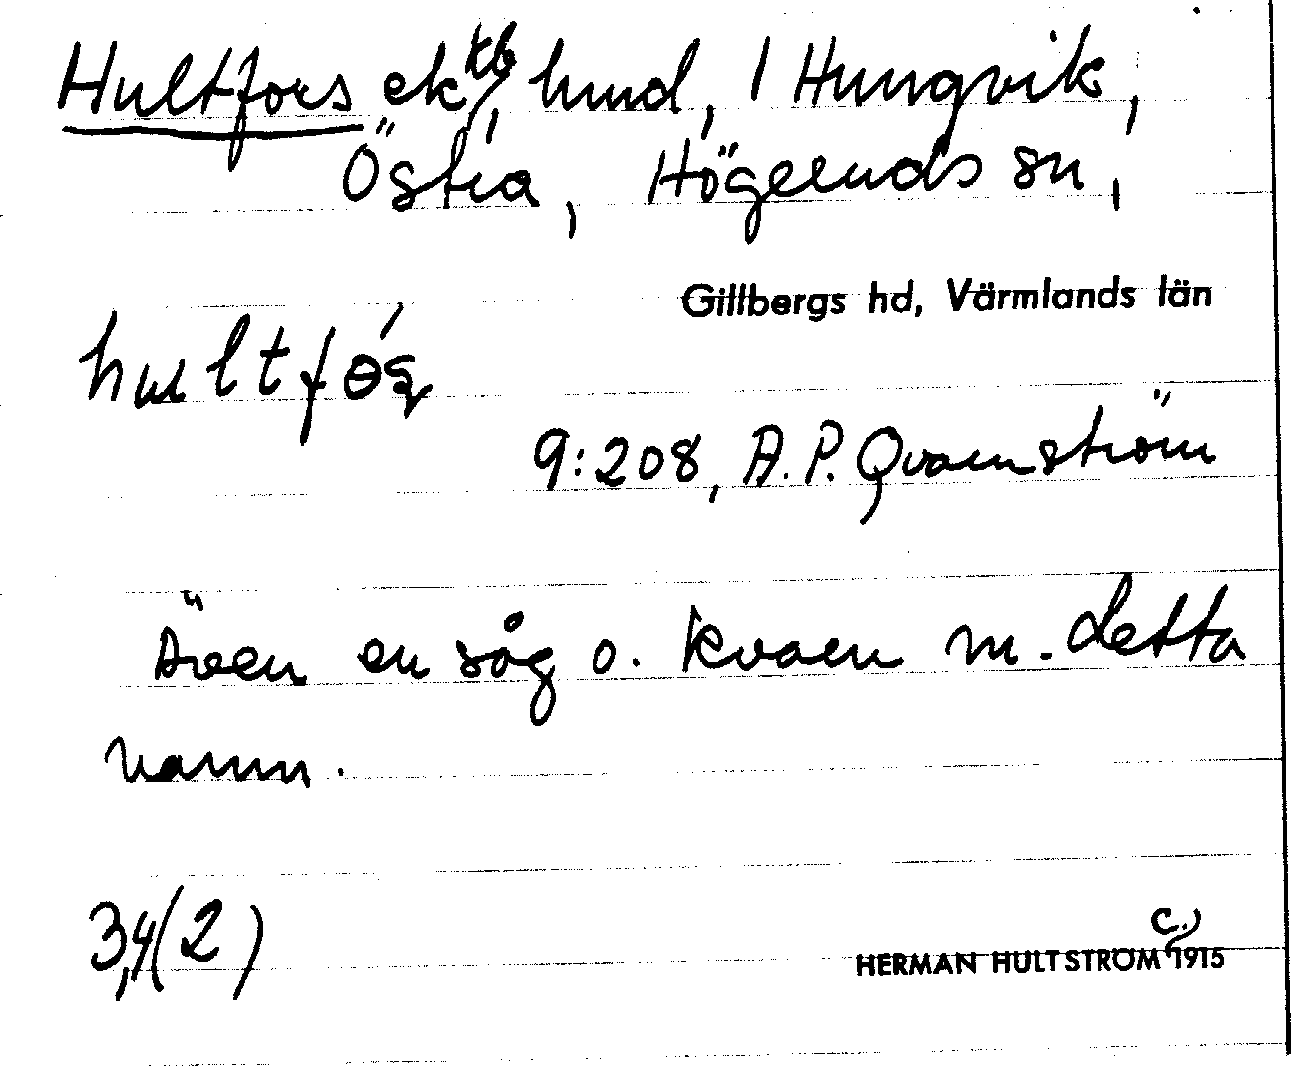 Hultfors ek kb, hmd, 1 Hungvik,
Östra, Högeruds sn,
Gillbergs hd, Värmlands län
9:208, A.P. Qvarnström
Även en såg o. kvarn m. detta
namn.
3,4(2)
c.
HERMAN HULTSTRÖM 1915